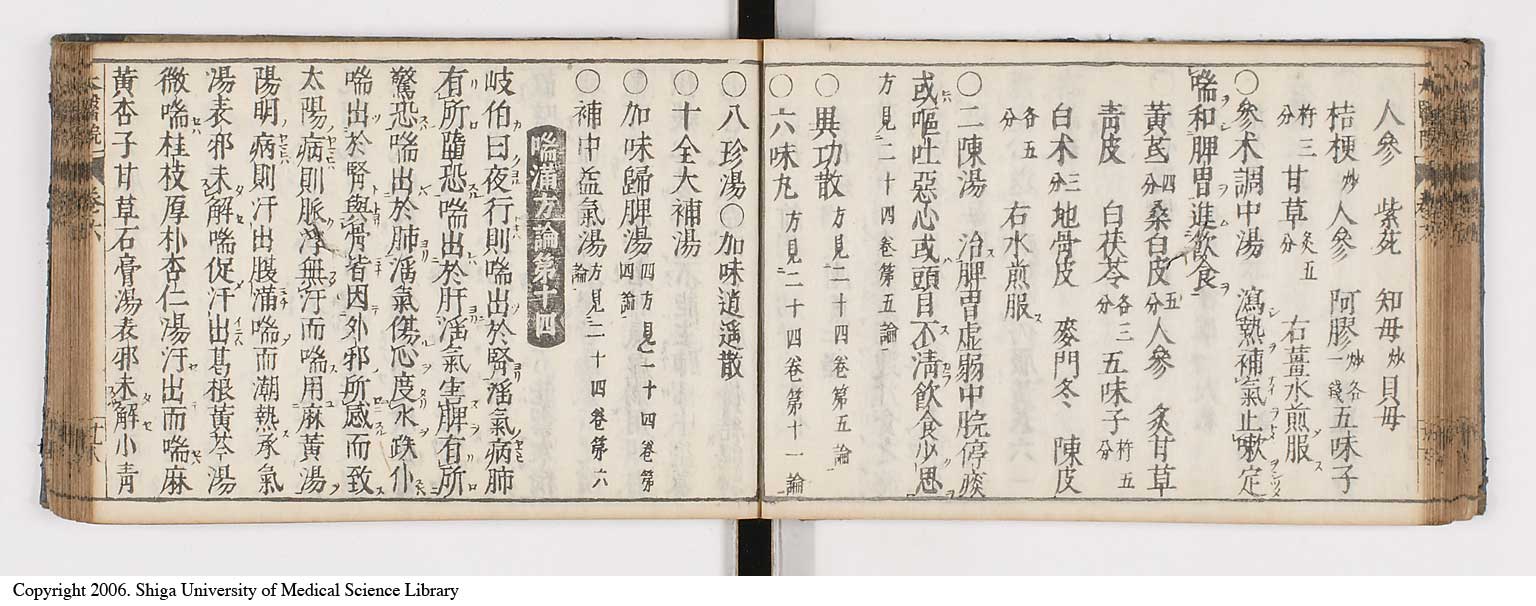 人參 紫苑 知母炒 貝母
桔梗炒 人參 阿膠炒各一錢 五味子
杵三分 甘草炙五分 右薑水煎服
〇參朮調中湯 瀉熱補氣止嗽定
喘和脾胃進飲食
黃芪四分 桑白皮五分 人參 炙甘草
靑皮 白茯苓各三分 五味子杵五分
白朮三分 地骨皮 麥門冬 陳皮
各五分 右水煎服
〇二陳湯 治脾胃虛弱中脘停痰
或嘔吐惡心或頭目不淸飲食少思
方見二十四卷第五論
〇異功散方見二十四卷第五論
〇六味丸方見二十四卷第十一論
〇八珍湯〇加味逍遥散
〇十全大補湯
〇加味歸脾湯四方見二十四卷第四論
〇補中益氣湯方見二十四卷第六論
喘滿方論第十四
岐伯曰夜行則喘出於腎淫氣病肺
有所墮恐喘出於肝淫氣害脾有所
驚恐喘出於肺淫氣傷心度水跌仆
喘出於腎與骨皆因外邪所感而致
太陽病則脈浮無汗而喘用麻黃湯
陽明病則汗出腹滿喘而潮熱承氣
湯表邪未解喘促汗出葛根黃芩湯
微喘桂枝厚朴杏仁湯汗出而喘麻
黃杏子甘草石膏湯表邪未解小靑
卷六
Copyright 2006. Shiga University of Medical Science Library